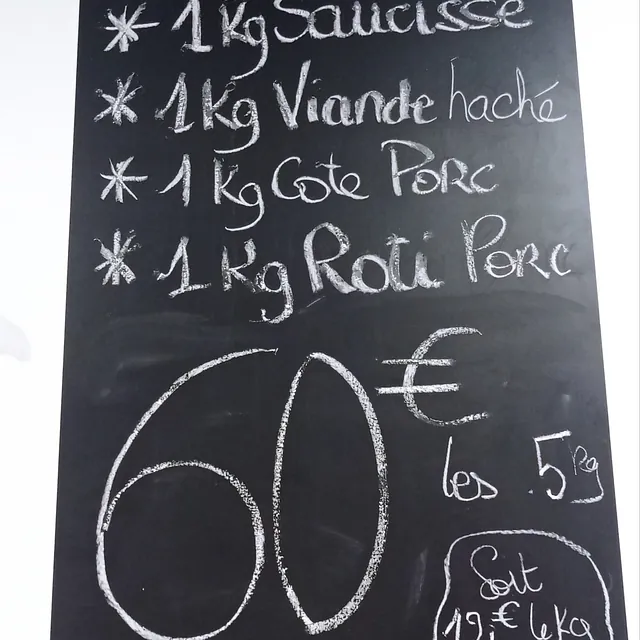 * 1 Kg Saucisse
* 1 Kg Viande haché
* 1 Kg Cote Porc
* 1 Kg Roti Porc
60 €
les 5 Kg
Soit
12,€ le Kg